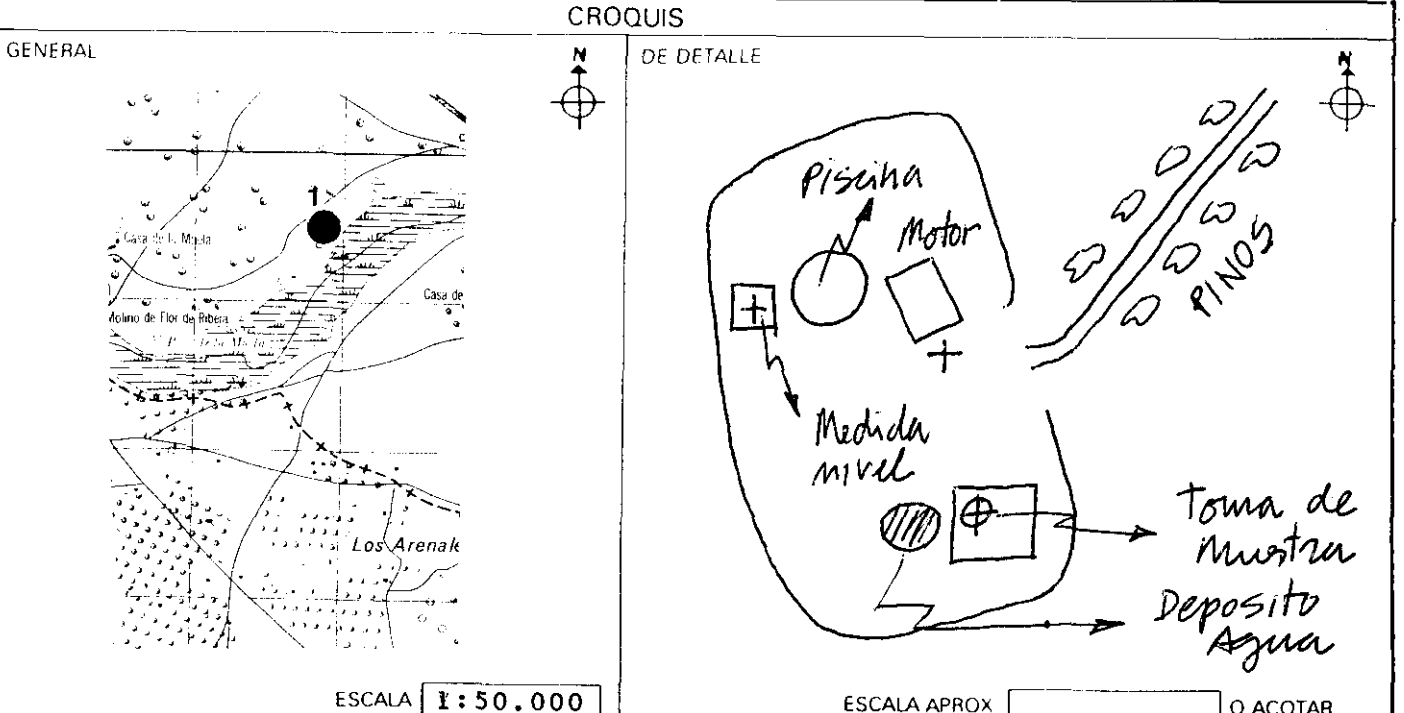 CROQUIS
GENERAL
N
1
Casa de la Muela
Casa de
Molino de Flor de Ribera
Los Arenal
ESCALA 1:50.000
DE DETALLE
N
Piscina
Motor
PINOS
Medida
nivel
Toma de
Muestra
Deposito
Agua
ESCALA APROX
O ACOTAR